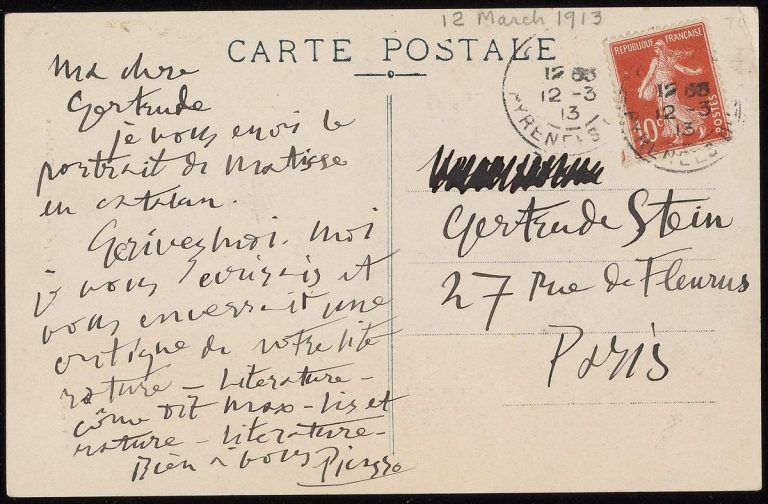 12 March 1913
CARTE POSTALE
REPUBLIQUE FRANÇAISE
10c POSTES
12 -3
13
PYRENEES
12 -3
13
PYRENEES
Ma chère
Gertrude
je vous envois le
portrait de Matisse
en catalan.
Ecrivez moi. moi
je vous ecrirais et
vous enverrait une
critique de votre lité
rature – Literature –
côme dit Max – lis et
rature – literature –
Bien à vous Picasso
Gertrude Stein
27 Rue de Fleurus
Paris